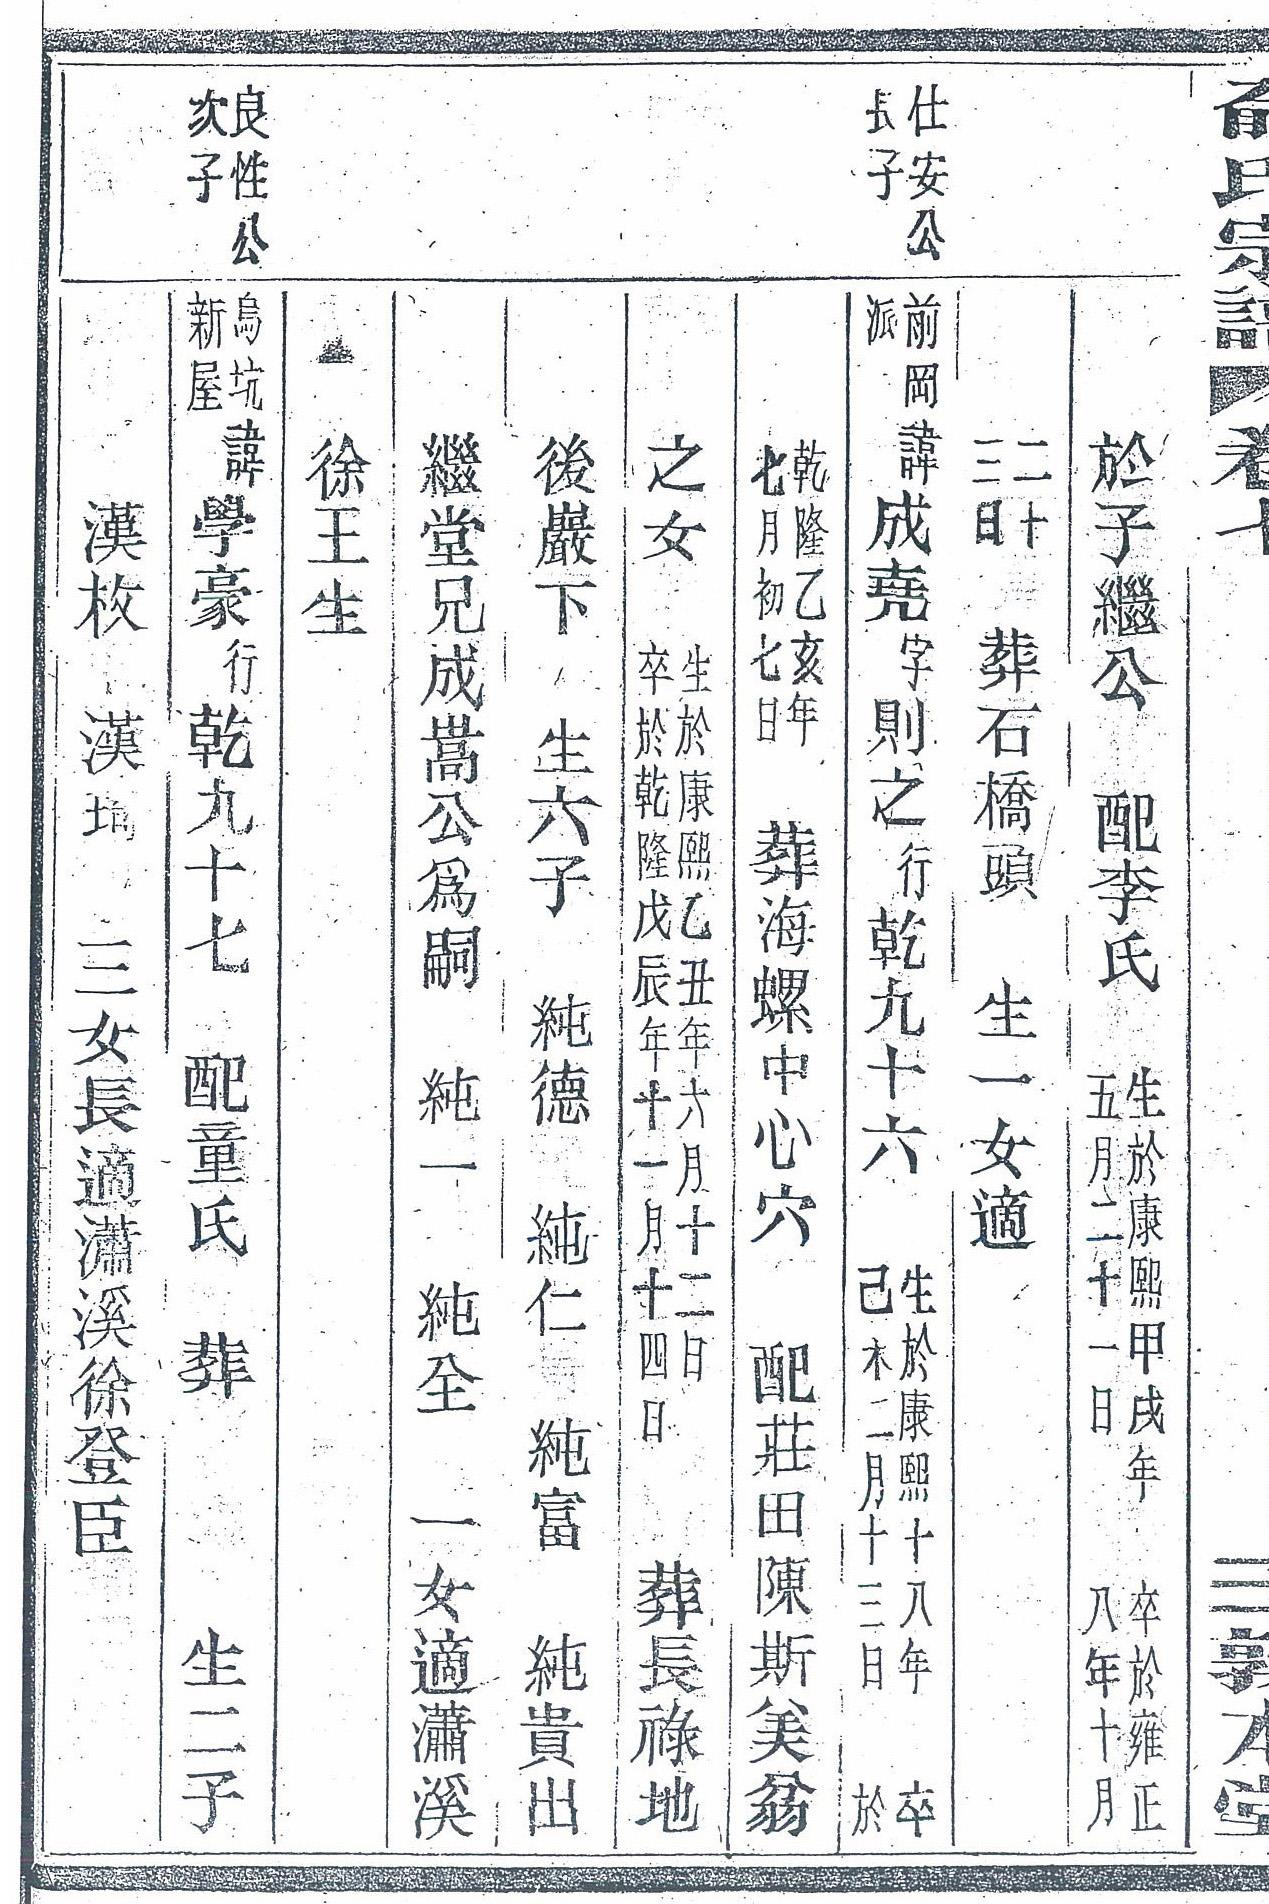 氏宗譜 卷七 敦本堂
於子繼公 配李氏 生於康熙甲戌年五月二十一日 卒於雍正八年十月
二十三日 葬石橋頭 生一女適
仕安公長子
前岡派 諱成堯字則之行乾九十六 生於康熙十八年己未二月十三日 卒於
乾隆乙亥年七月初七日 葬海螺中心穴 配莊田陳斯美翁
之女 生於康熙乙丑年六月十二日 卒於乾隆戊辰年十一月十四日 葬長祿地
後巖下 生六子 純德 純仁 純富 純貴出
繼堂兄成嵩公為嗣 純一 純全 一女適瀟溪
徐王生
良性公次子
烏坑新屋 諱學豪行乾九十七 配童氏 葬 生二子
漢枚 漢 三女長適瀟溪徐登臣